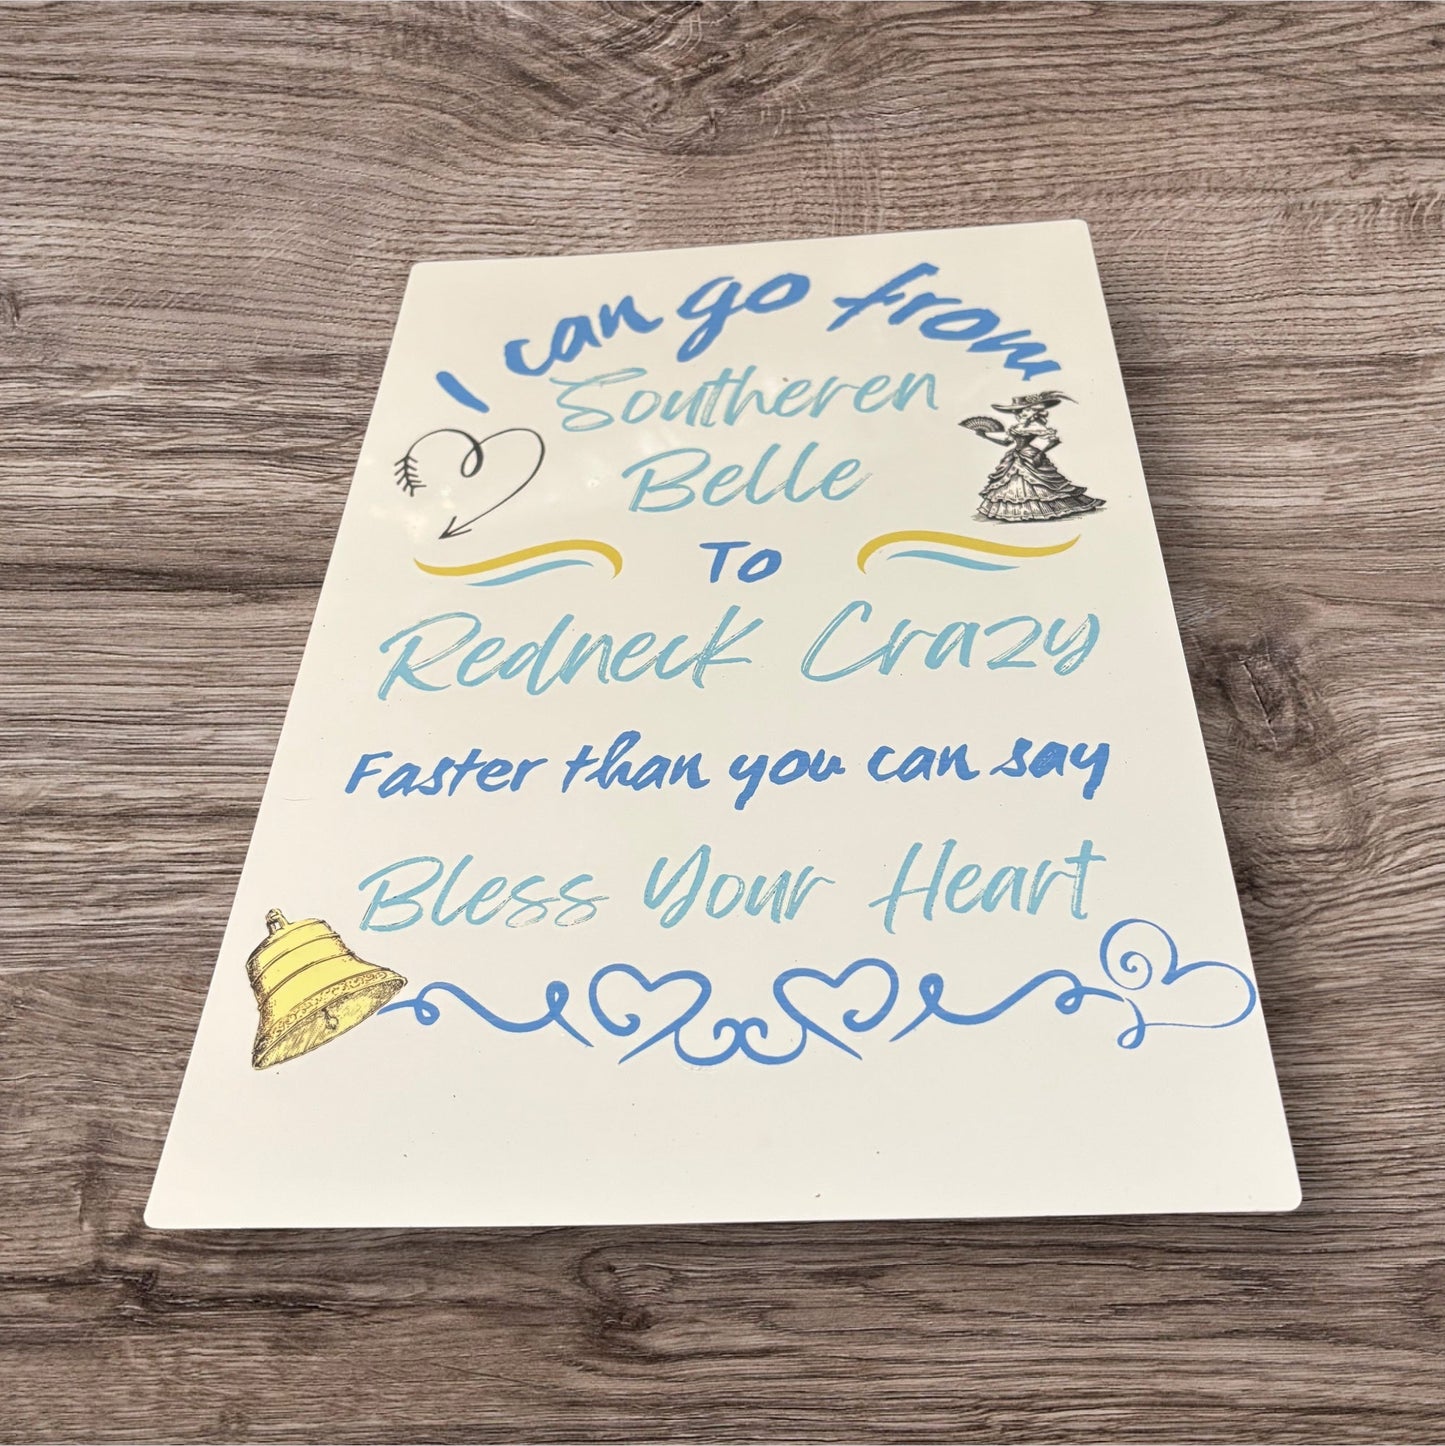 I can go from
Southeren
Belle
To
Redneck Crazy
Faster than you can say
Bless Your Heart